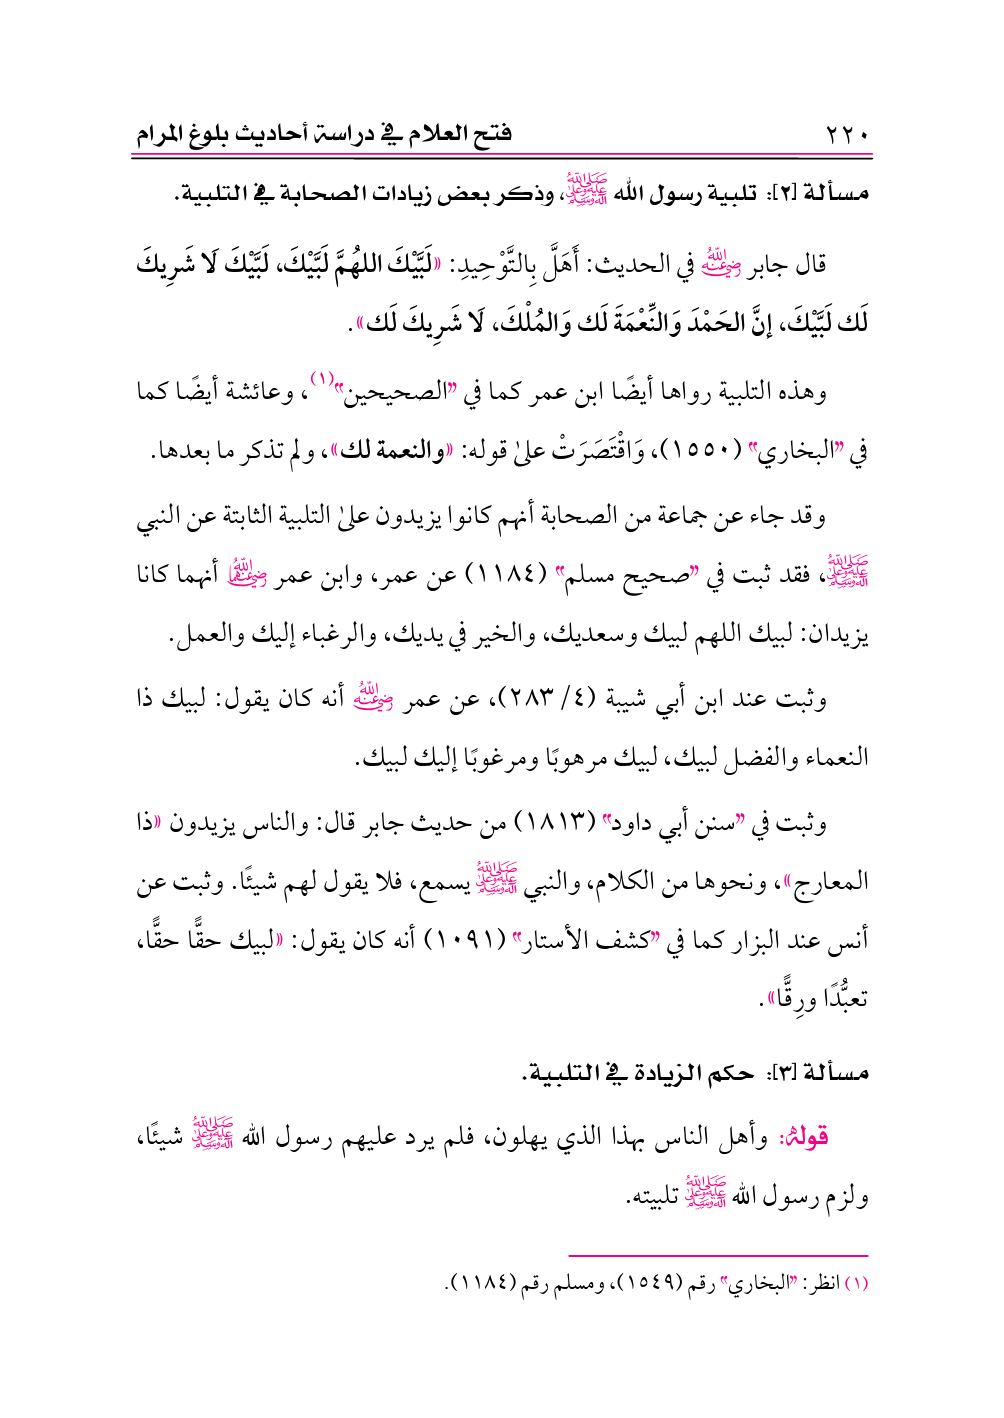 ٢٢٠ فتح العلام في دراسة أحاديث بلوغ المرام
مسألة [٢]: تلبية رسول الله ﷺ، وذكر بعض زيادات الصحابة في التلبية.
قال جابر رضي الله عنه في الحديث: أَهَلَّ بِالتَّوْحِيدِ: «لَبَّيْكَ اللهُمَّ لَبَّيْكَ، لَبَّيْكَ لَا شَرِيكَ
لَك لَبَّيْكَ، إنَّ الحَمْدَ وَالنِّعْمَةَ لَك وَالمُلْكَ، لَا شَرِيكَ لَك».
وهذه التلبية رواها أيضًا ابن عمر كما في "الصحيحين"(١)، وعائشة أيضًا كما
في "البخاري" (١٥٥٠)، وَاقْتَصَرَتْ علىٰ قوله: «والنعمة لك»، ولم تذكر ما بعدها.
وقد جاء عن جماعة من الصحابة أنهم كانوا يزيدون علىٰ التلبية الثابتة عن النبي
ﷺ، فقد ثبت في "صحيح مسلم" (١١٨٤) عن عمر، وابن عمر رضي الله عنهما أنهما كانا
يزيدان: لبيك اللهم لبيك وسعديك، والخير في يديك، والرغباء إليك والعمل.
وثبت عند ابن أبي شيبة (٤/ ٢٨٣)، عن عمر رضي الله عنه أنه كان يقول: لبيك ذا
النعماء والفضل لبيك، لبيك مرهوبًا ومرغوبًا إليك لبيك.
وثبت في "سنن أبي داود" (١٨١٣) من حديث جابر قال: والناس يزيدون «ذا
المعارج»، ونحوها من الكلام، والنبي ﷺ يسمع، فلا يقول لهم شيئًا. وثبت عن
أنس عند البزار كما في "كشف الأستار" (١٠٩١) أنه كان يقول: «لبيك حقًّا حقًّا،
تعبُّدًا ورِقًّا».
مسألة [٣]: حكم الزيادة في التلبية.
قوله: وأهل الناس بهذا الذي يهلون، فلم يرد عليهم رسول الله ﷺ شيئًا،
ولزم رسول الله ﷺ تلبيته.
(١) انظر: "البخاري" رقم (١٥٤٩)، ومسلم رقم (١١٨٤).